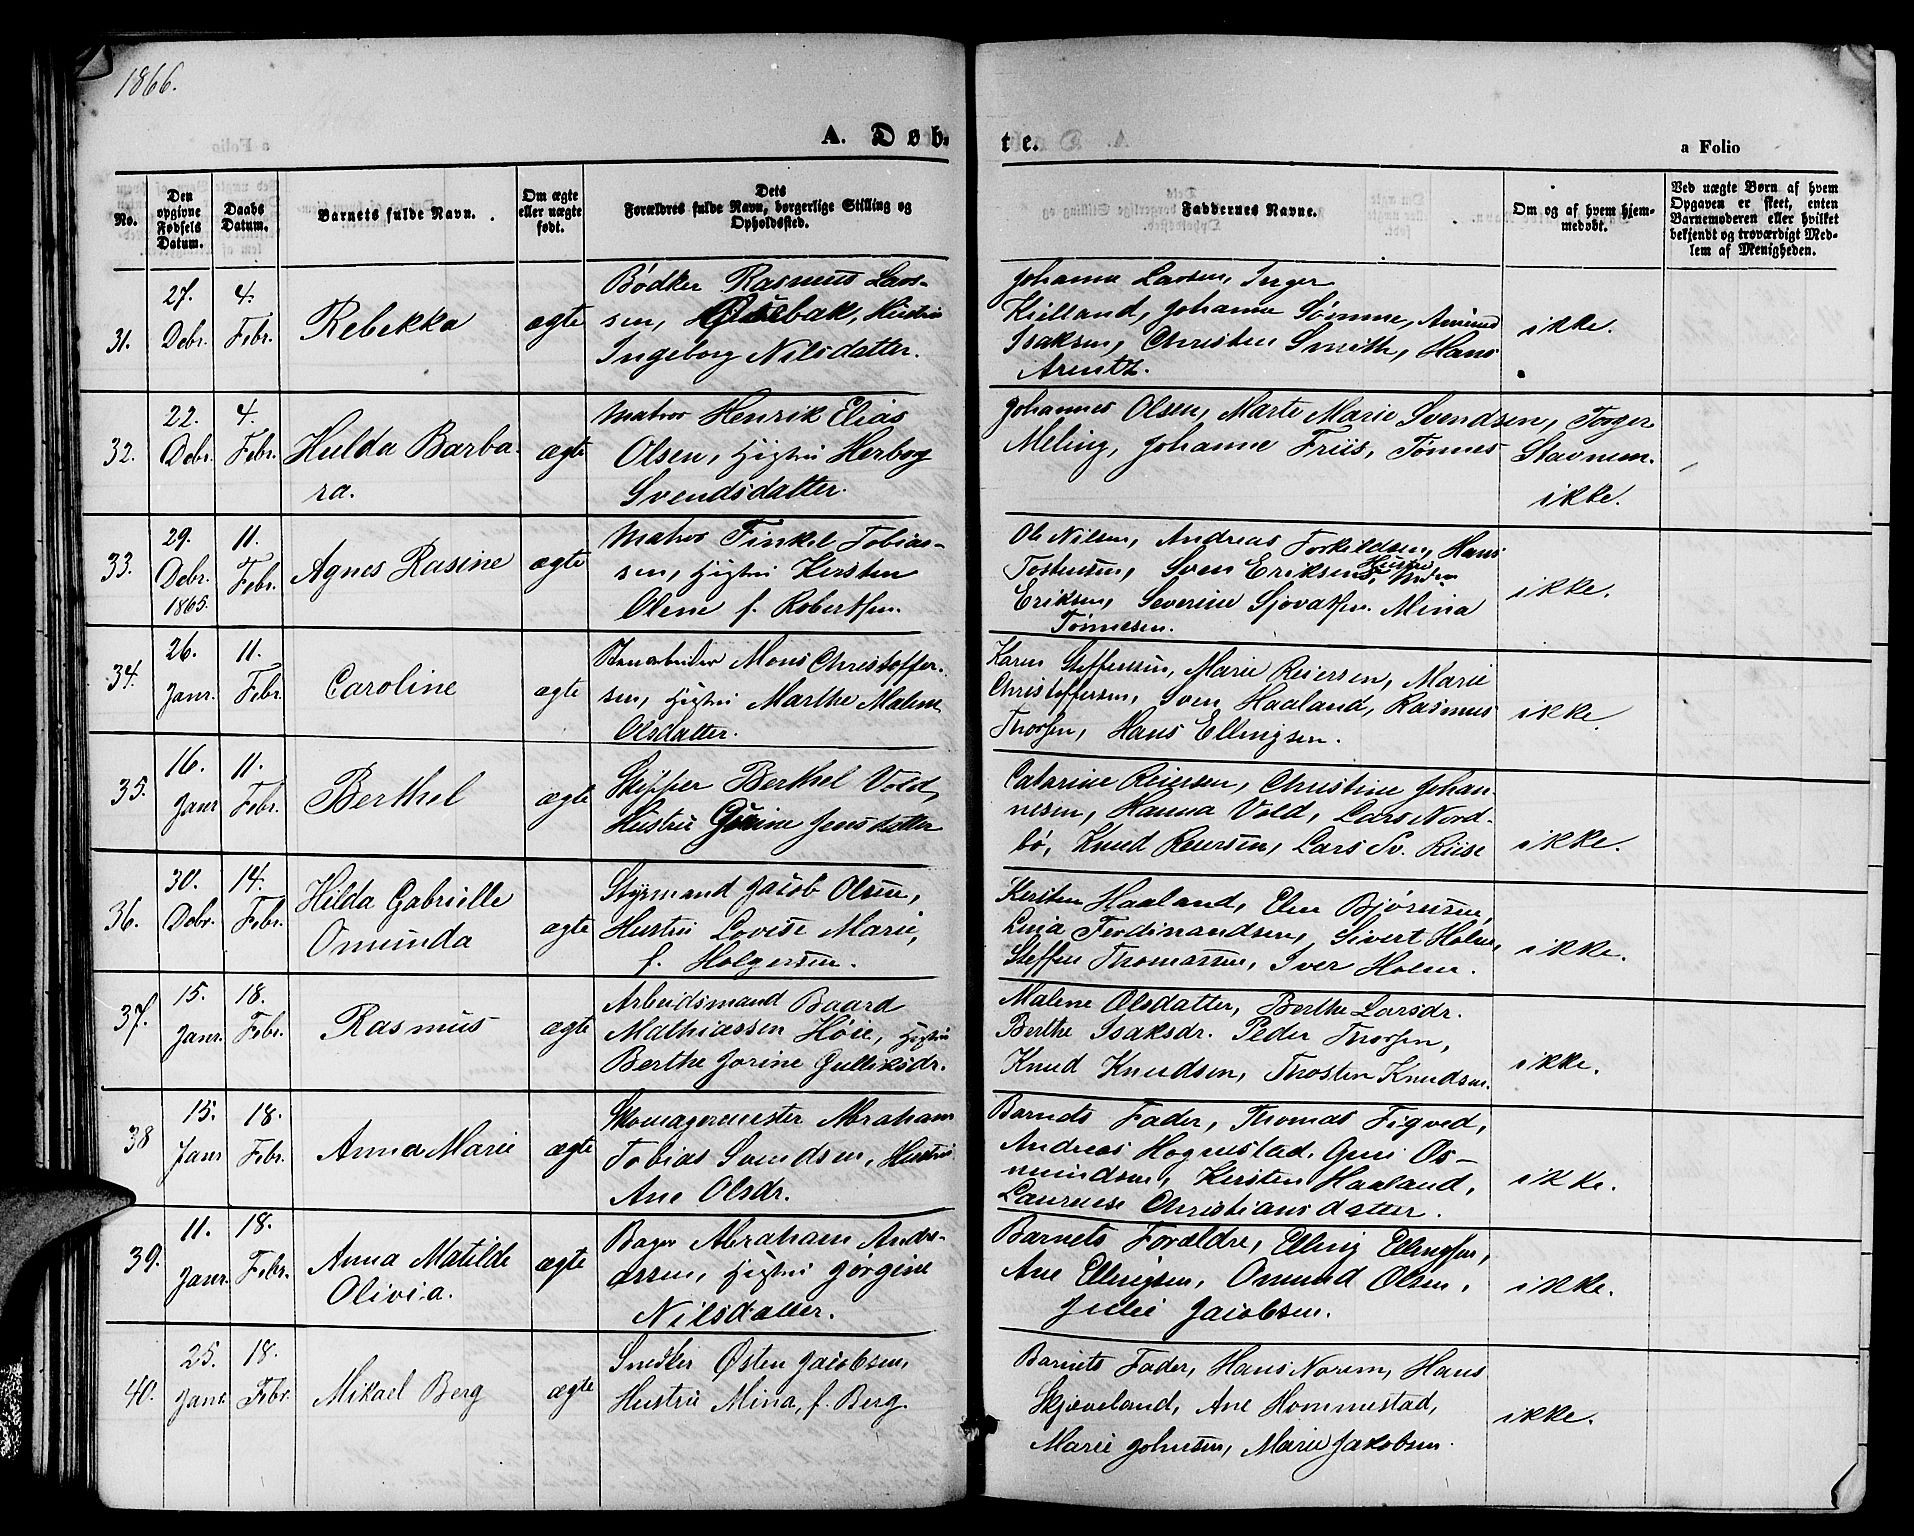 1866.
A. Døb-
te.
a Folio
No.
Den opgivne Fødsels Datum.
Daabs Datum.
Barnets fulde Navn.
Om ægte eller uægte født.
Dets Forældres fulde Navn, borgerlige Stilling og Opholdssted.
Faddernes Navne.
Om og af hvem hjemmedøbt.
Ved uægte Børn af hvem Opgaven er skeet, enten Barnemoderen eller hvilket bekjendt og troværdigt Medlem af Menigheden.
31.
27. Debr.
4. Febr.
Rebekka
ægte
Bødker Rasmus Lars-
sen, Husebak, Hustru
Ingeborg Nilsdatter.
Johanna Larsen, Inger
Kielland, Johanne Sømme, Amund
Isaksen, Christen Smith, Hans
Arentz.
ikke.
32.
22. Debr.
4. Febr.
Hulda Barba-
ra.
ægte
Matros Henrik Elias
Olsen, Hustru Herborg
Svendsdatter.
Johannes Olsen, Marte Marie Svendsen, Torger
Meling, Johanne Friis, Tønnes Stavnem.
ikke.
33.
29. Debr. 1865.
11. Febr.
Agnes Rasine
ægte
Matros Tinkel Tobias-
sen, Hustru Kersten
Olene f. Robertsen.
Ole Nilsen, Andreas Torkildsen, Hans
Tostensen, Sven Eriksens Hustru,
Eriksen, Severine Sjovatsen. Mina
Tønnesen.
ikke.
34.
26. Janr.
11. Febr.
Caroline
ægte
Stenarbeider Mons Christoffer-
sen, Hustru Marthe Malene
Olsdatter.
Karen Steffensen, Marie Reiersen, Marie
Christoffersen, Sven Haaland, Rasmus
Thorsen, Hans Ellingsen.
ikke.
35.
16. Janr
11. Febr.
Berthel
ægte
Skipper Berthel Vold,
Hustru Gurine Jensdatter
Catarine Reiersen, Christine Johan-
nesen, Hanna Vold, Lars Nord-
bö, Knud Reiersen, Lars Sv. Riise
ikke.
36.
30. Debr.
14. Febr.
Hilda Gabrielle
Omunda
ægte
Styrmand Jacob Olsen,
Hustru Lovise Marie,
f. Holgersen.
Kersten Haaland, Elen Bjørnsen,
Lina Ferdinandsen, Sivert Holm,
Steffen Thomassen, Iver Holm.
ikke.
37.
15. Janr.
18. Febr.
Rasmus
ægte
Arbeidsmand Baard
Mathiassen Høie, Hustru
Berthe Jorine Gulliksdr.
Malene Olsdatter, Berthe Larsdr.
Berthe Isaksdr. Peder Thorsen,
Knud Knudsen, Thosten Knudsen.
ikke.
38
15. Janr
18. Febr.
Anna Marie
ægte
Skomagermester Abraham
Tobias Svendsen, Hustru
Ane Olsdr.
Barnets Fader, Thomas Tigved,
Andreas Hognestad, Guri Os-
mundsen, Kersten Haaland,
Laurense Christiansdatter.
ikke.
39.
11. Janr.
18. Febr.
Anna Matilde
Olivia.
ægte
Bager Abraham Andre-
assen, Hustru Jørgine
Nilsdatter.
Barnets Forældre, Elling Ellingsen,
Ane Ellingsen, Omund Olsen,
Julie Jacobsen.
ikke.
40.
25. Janr.
18. Febr.
Mikael Berg
ægte
Snedker Østen Jacobsen,
Hustru Mina, f. Berg.
Barnets Fader, Hans Norem, Hans
Skjæveland, Ane Hommestad,
Marie Johnsen, Marie Jakobsen.
ikke.